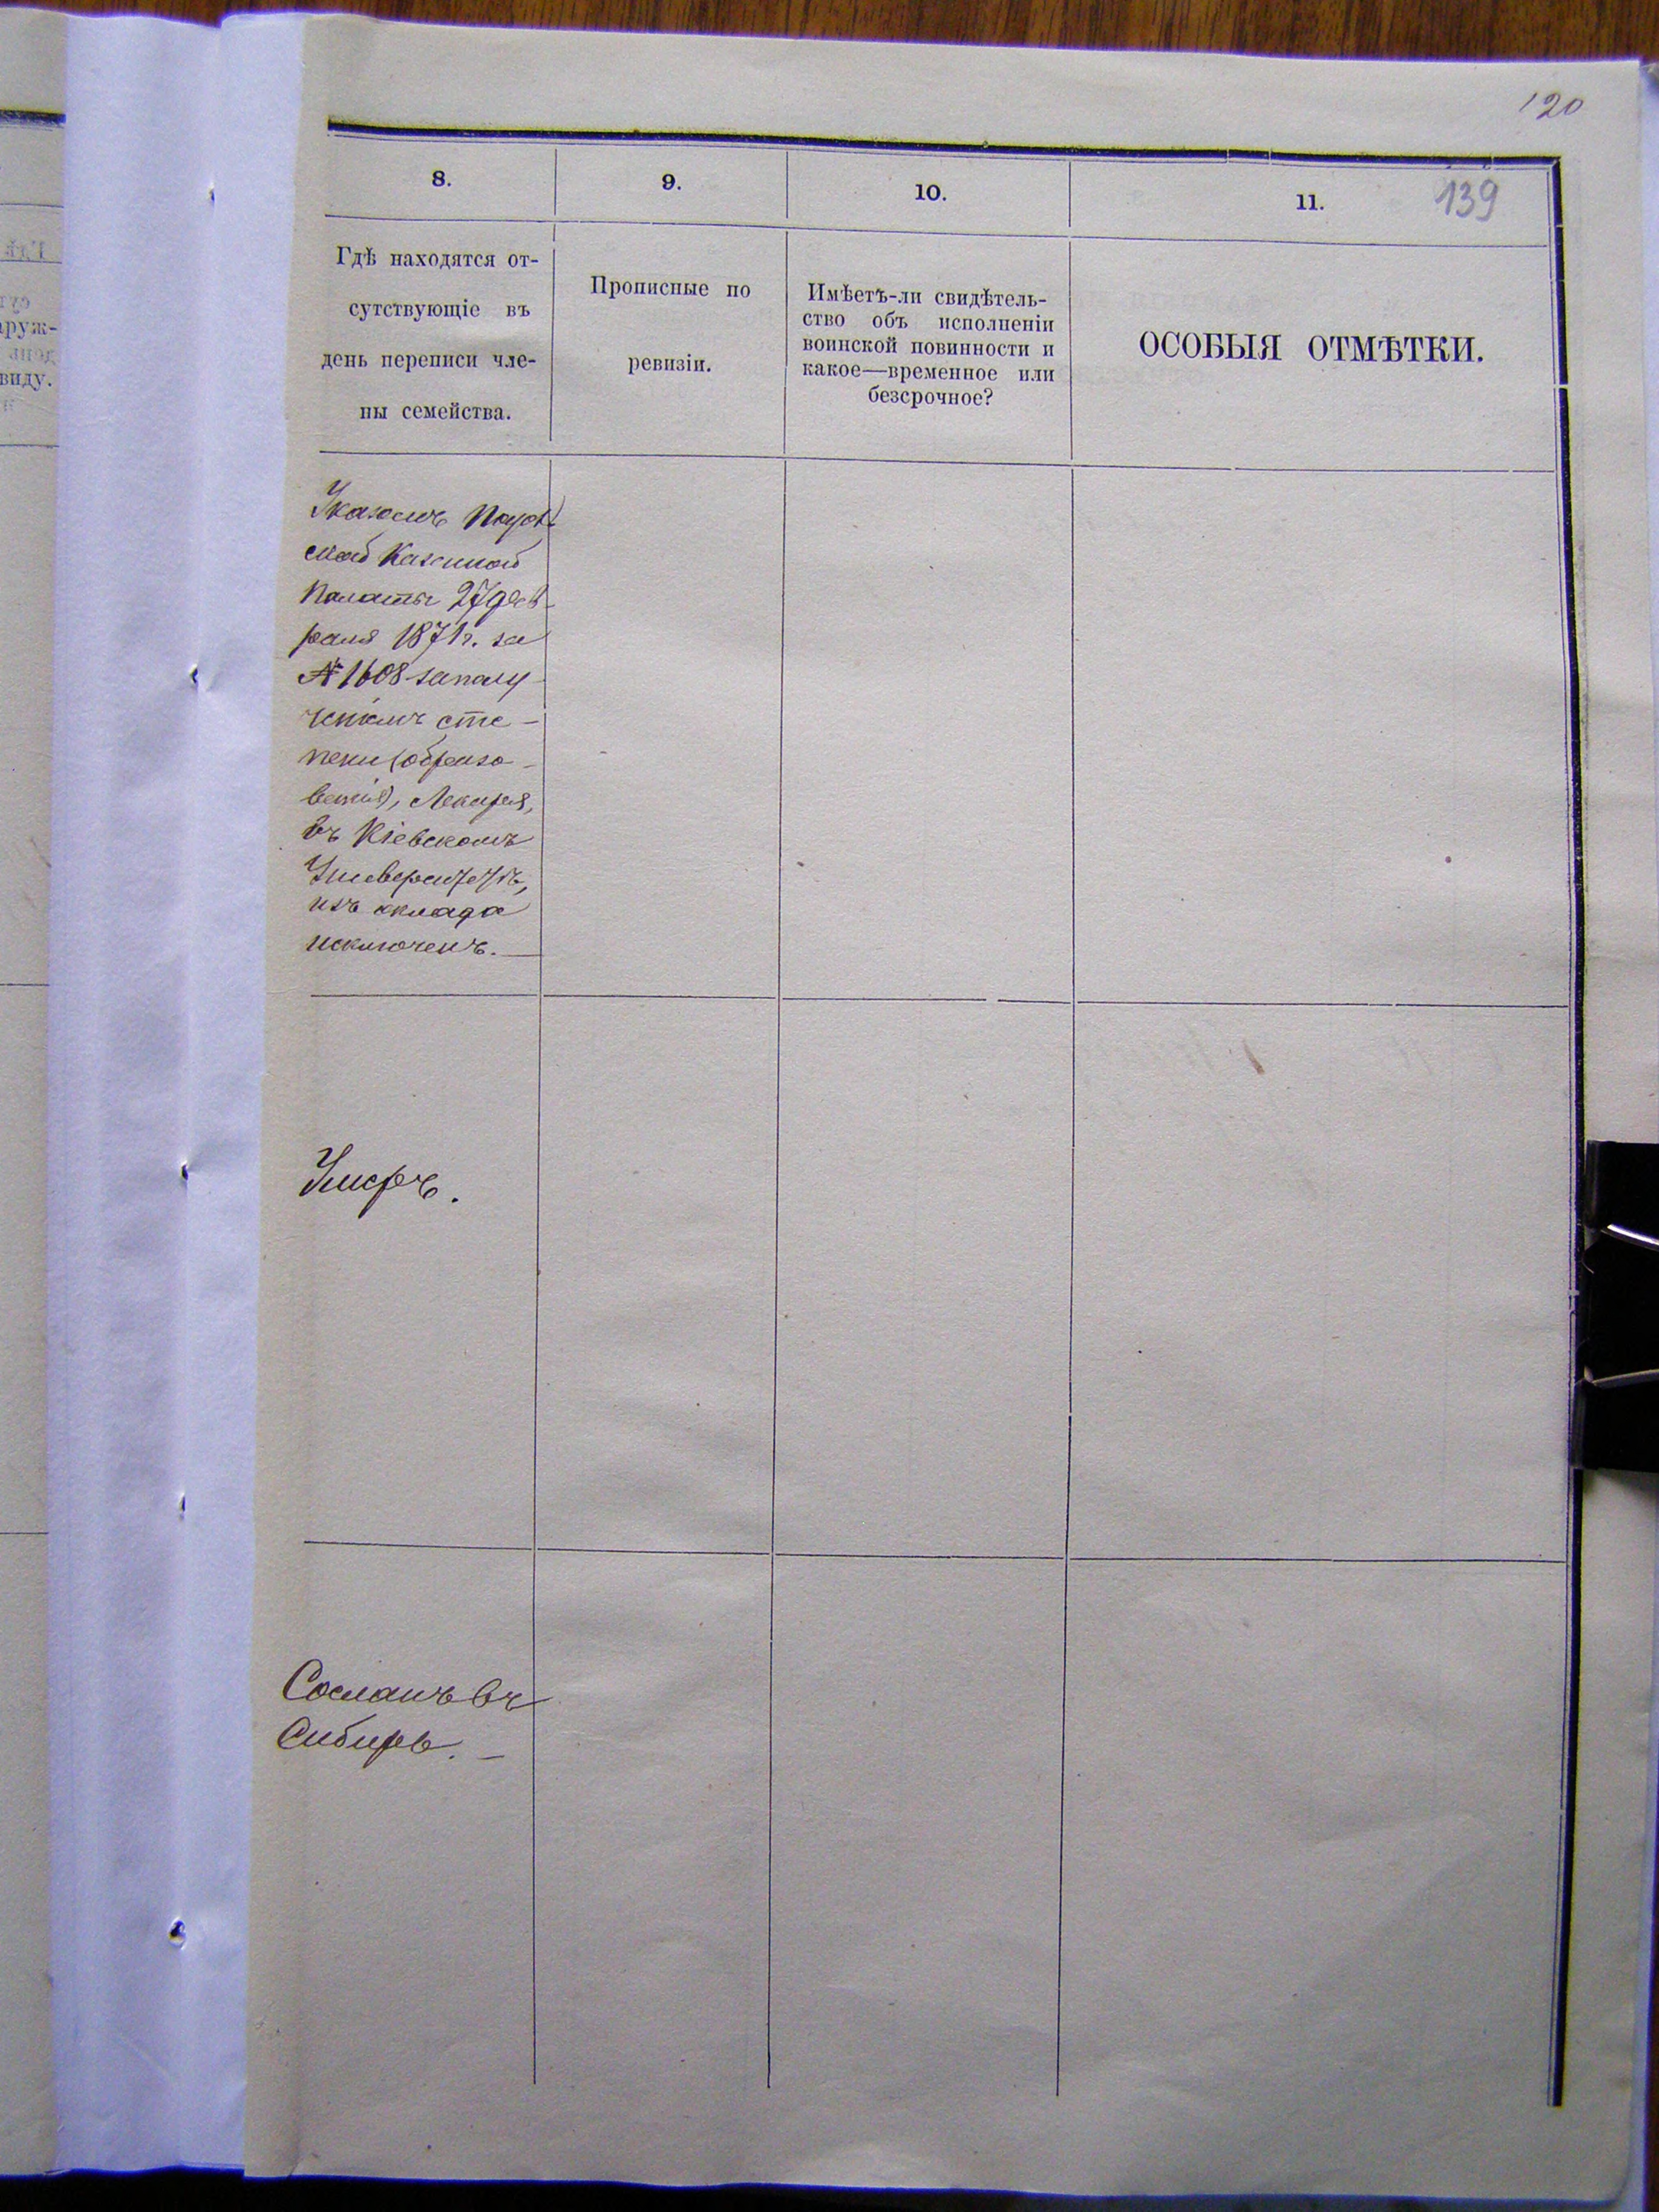 120
139
8.
9.
10.
11.
Гдѣ находятся от-
сутствующіе въ
день переписи чле-
ны семейства.
Прописные по
ревизіи.
Имѣетъ-ли свидѣтель-
ство объ исполненіи
воинской повинности и
какое—временное или
безсрочное?
ОСОБЫЯ ОТМѢТКИ.
Указомъ
ской Казенной
Палаты 27 фев-
раля 1871 г. за
№ 1608 за полу-
ченіемъ сте-
пени (образо-
ванія), Лекаря,
въ Кіевскомъ
Университетѣ,
изъ оклада
исключенъ. —
Умеръ.
Сосланъ въ
Сибирь. —
аруж-
виду.